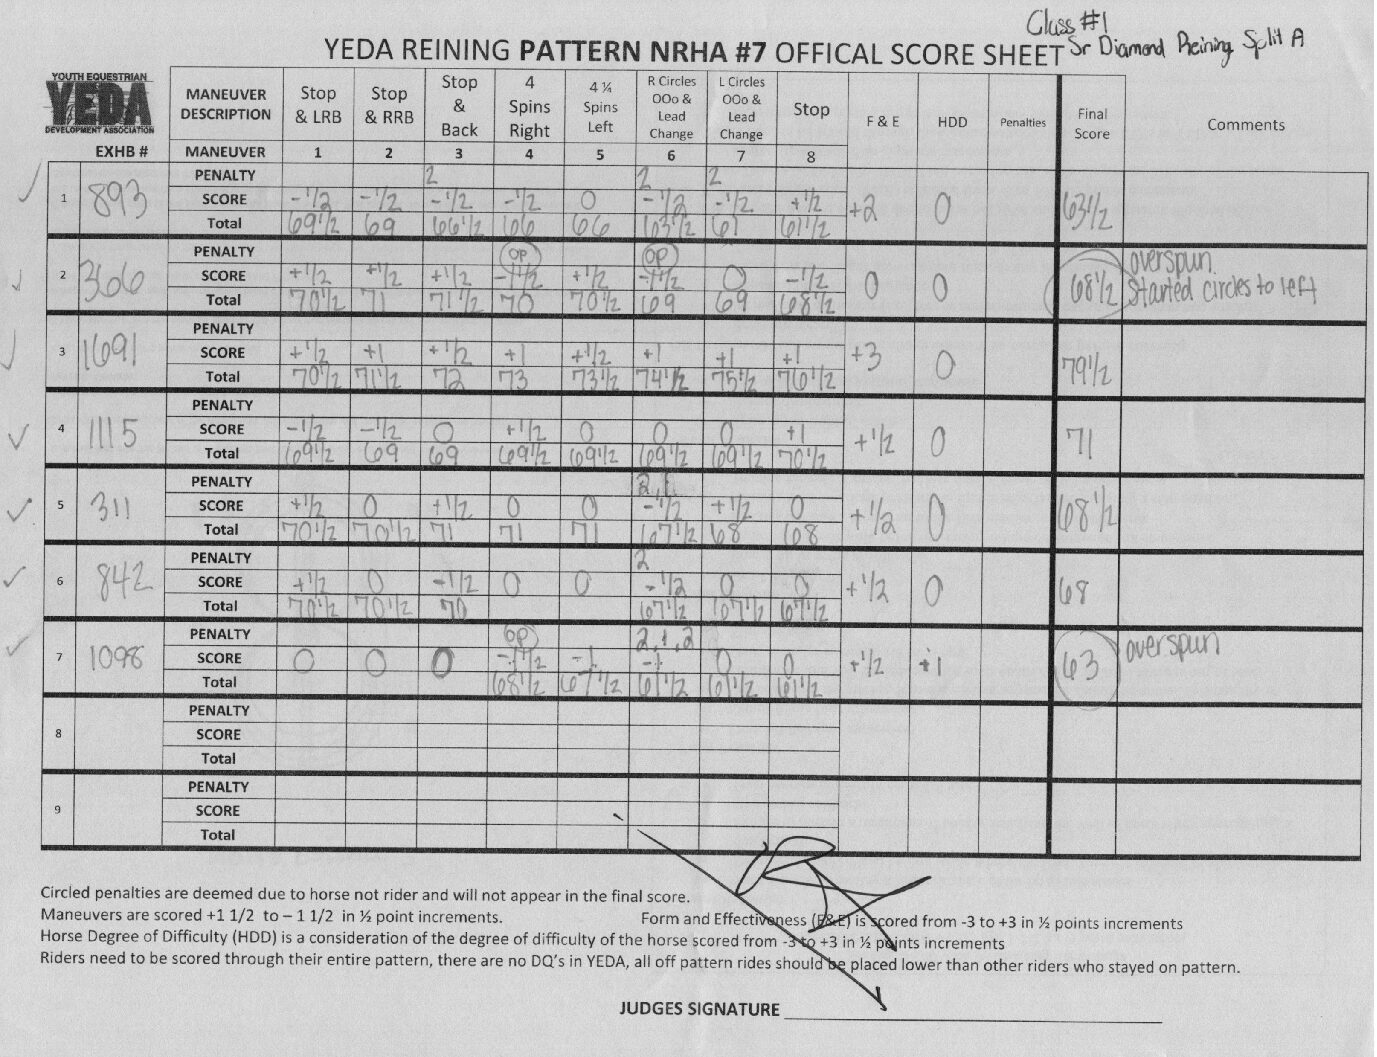 Class #1
Sr Diamond Reining Split A
YEDA REINING PATTERN NRHA #7 OFFICAL SCORE SHEET
YOUTH EQUESTRIAN
YEDA
DEVELOPMENT ASSOCIATION
EXHB #
MANEUVER DESCRIPTION Stop & LRB Stop & RRB Stop & Back 4 Spins Right 4 ¼ Spins Left R Circles OOo & Lead Change L Circles OOo & Lead Change Stop F & E HDD Penalties Final Score Comments
MANEUVER 1 2 3 4 5 6 7 8
1 893
PENALTY 2 2 2
SCORE -1/2 -1/2 -1/2 -1/2 0 -1/2 -1/2 +1/2 +2 0 63 1/2
Total 69 1/2 69 66 1/2 66 66 63 1/2 61 61 1/2
2 366
PENALTY OP OP
SCORE +1/2 +1/2 +1/2 -1 1/2 +1/2 -1 1/2 0 -1/2 0 0 68 1/2 overspun. Started circles to left
Total 70 1/2 71 71 1/2 70 70 1/2 69 69 68 1/2
3 1691
PENALTY
SCORE +1/2 +1 +1/2 +1 +1/2 +1 +1 +1 +3 0 79 1/2
Total 70 1/2 71 1/2 72 73 73 1/2 74 1/2 75 1/2 76 1/2
4 1115
PENALTY
SCORE -1/2 -1/2 0 +1/2 0 0 0 +1 +1/2 0 71
Total 69 1/2 69 69 69 1/2 69 1/2 69 1/2 69 1/2 70 1/2
5 311
PENALTY 2, 1
SCORE +1/2 0 +1/2 0 0 -1/2 +1/2 0 +1/2 0 68 1/2
Total 70 1/2 70 1/2 71 71 71 67 1/2 68 68
6 842
PENALTY 2
SCORE +1/2 0 -1/2 0 0 -1/2 0 0 +1/2 0 68
Total 70 1/2 70 1/2 70 67 1/2 67 1/2 67 1/2
7 1098
PENALTY OP 2, 1, 2
SCORE 0 0 0 -1 1/2 -1 -1 0 0 +1/2 +1 63 overspun
Total 68 1/2 67 1/2 61 1/2 61 1/2 61 1/2
8
PENALTY
SCORE
Total
9
PENALTY
SCORE
Total
Circled penalties are deemed due to horse not rider and will not appear in the final score.
Maneuvers are scored +1 1/2 to – 1 1/2 in ½ point increments. Form and Effectiveness (F&E) is scored from -3 to +3 in ½ points increments
Horse Degree of Difficulty (HDD) is a consideration of the degree of difficulty of the horse scored from -3 to +3 in ½ points increments
Riders need to be scored through their entire pattern, there are no DQ's in YEDA, all off pattern rides should be placed lower than other riders who stayed on pattern.
JUDGES SIGNATURE